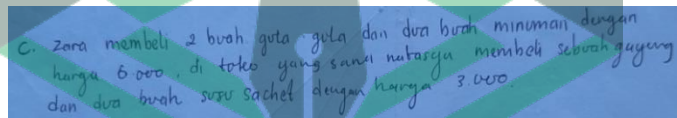 C. zara membeli 2 buah gula-gula dan dua buah minuman dengan
harga 6 000, di toko yang sama natasya membeli sebuah gayung
dan dua buah susu sachet dengan harga 3.000.